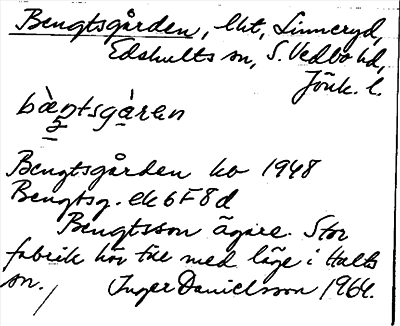 Bengtsgården, lht, Linneryd,
Edshults sn, S. Vedbo hd,
Jönk. l.
bæ̀ŋtsgàren
Bengtsgården ko 1948
Bengtsg. ek 6F8d
Bengtsson ägare. Stor
fabrik hör till med läge i Hults
sn. / Inger Danielsson 1964.